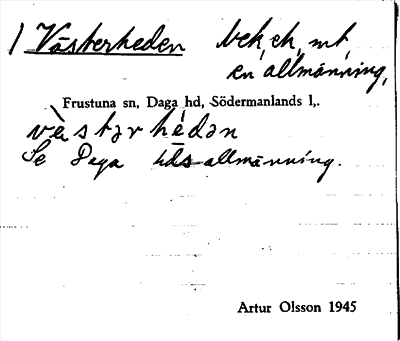 1 Västerheden bek, ek, mt,
en allmänning,
Frustuna sn, Daga hd, Södermanlands l,.
vèstərhédən
Se Daga hds allmänning.
Artur Olsson 1945